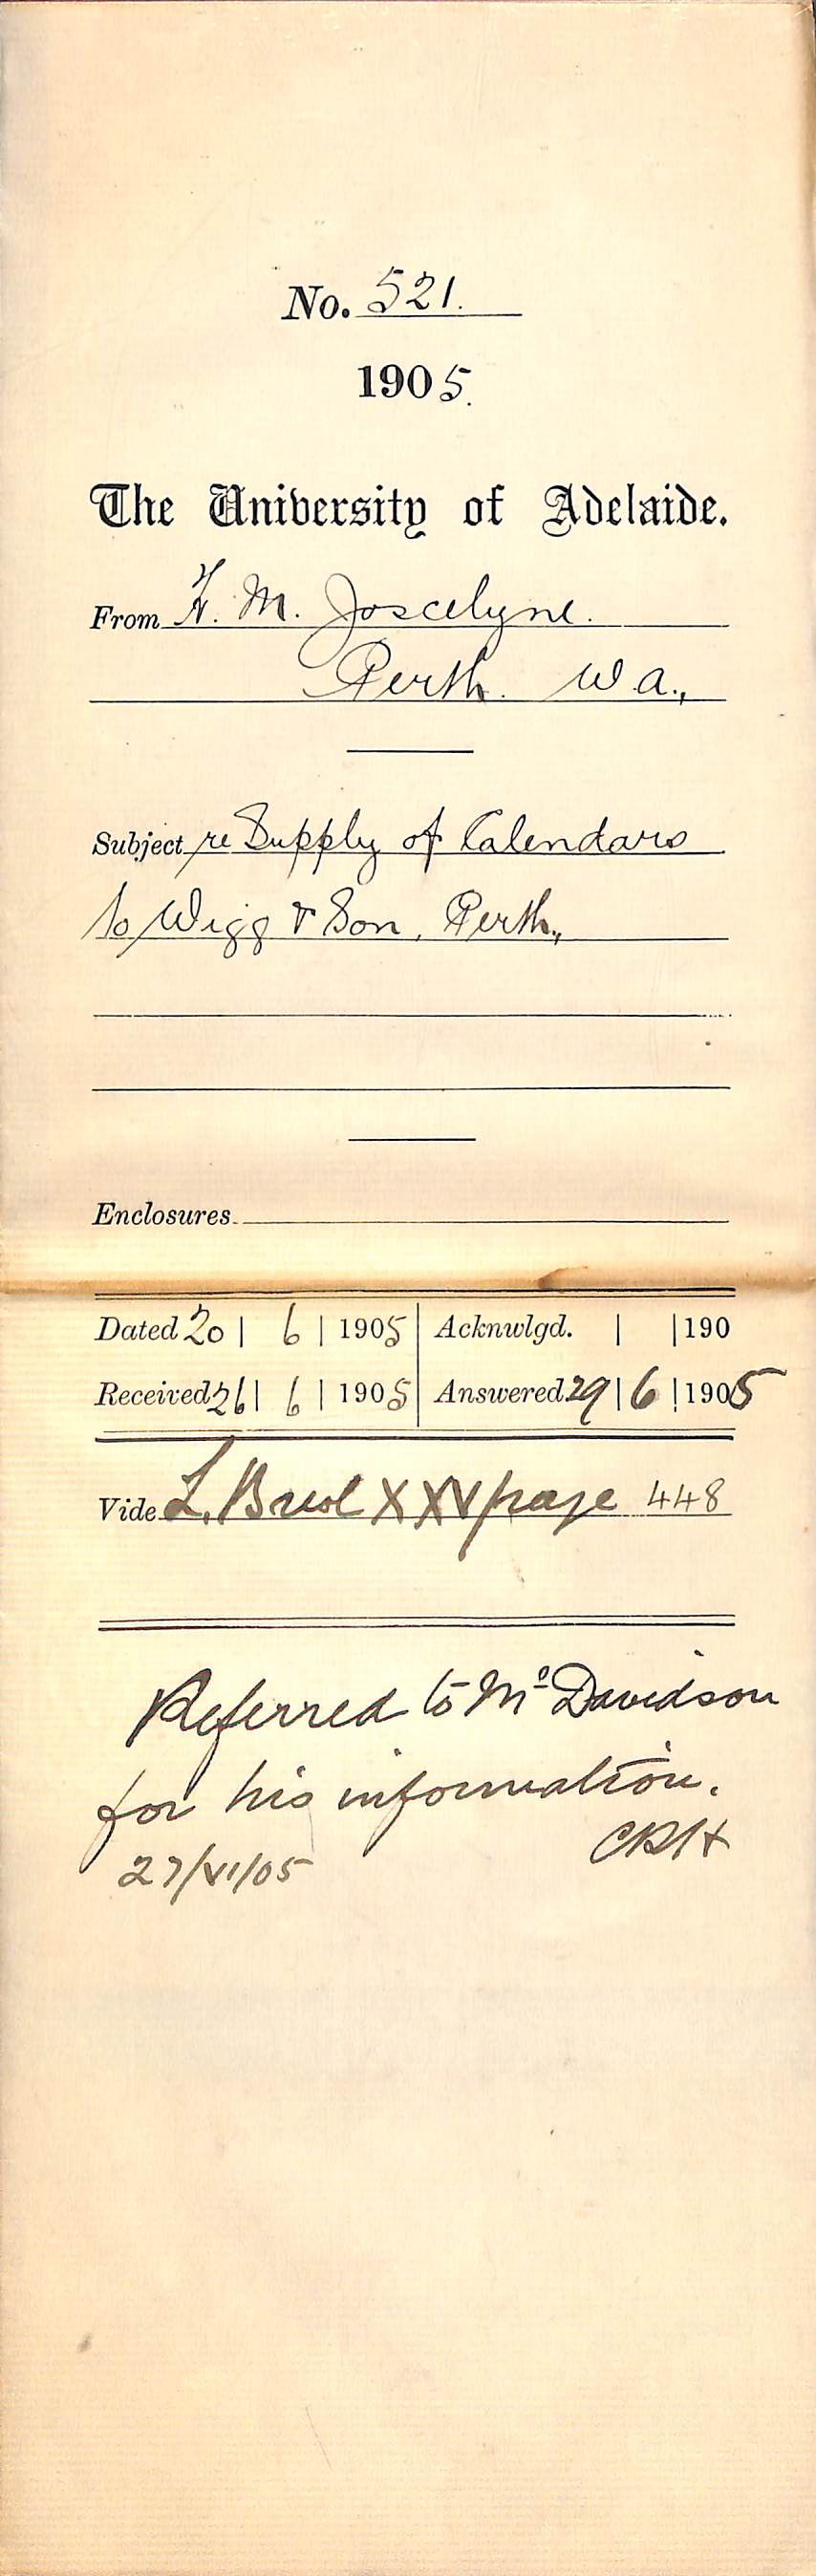 No. 521.
1905.
The University of Adelaide.
From H. M. Joscelyne.
Perth. W.a.,
Subject re Supply of Calendars
to Wigg & Son, Perth.,
Enclosures
Dated 20 | 6 | 1905 | Acknwlgd. | | 190
Received 26 | 6 | 1905 | Answered 29 | 6 | 1905
Vide L. XXV page 448
Referred to Mr Davidson
for his information.
CRH
27/VI/05